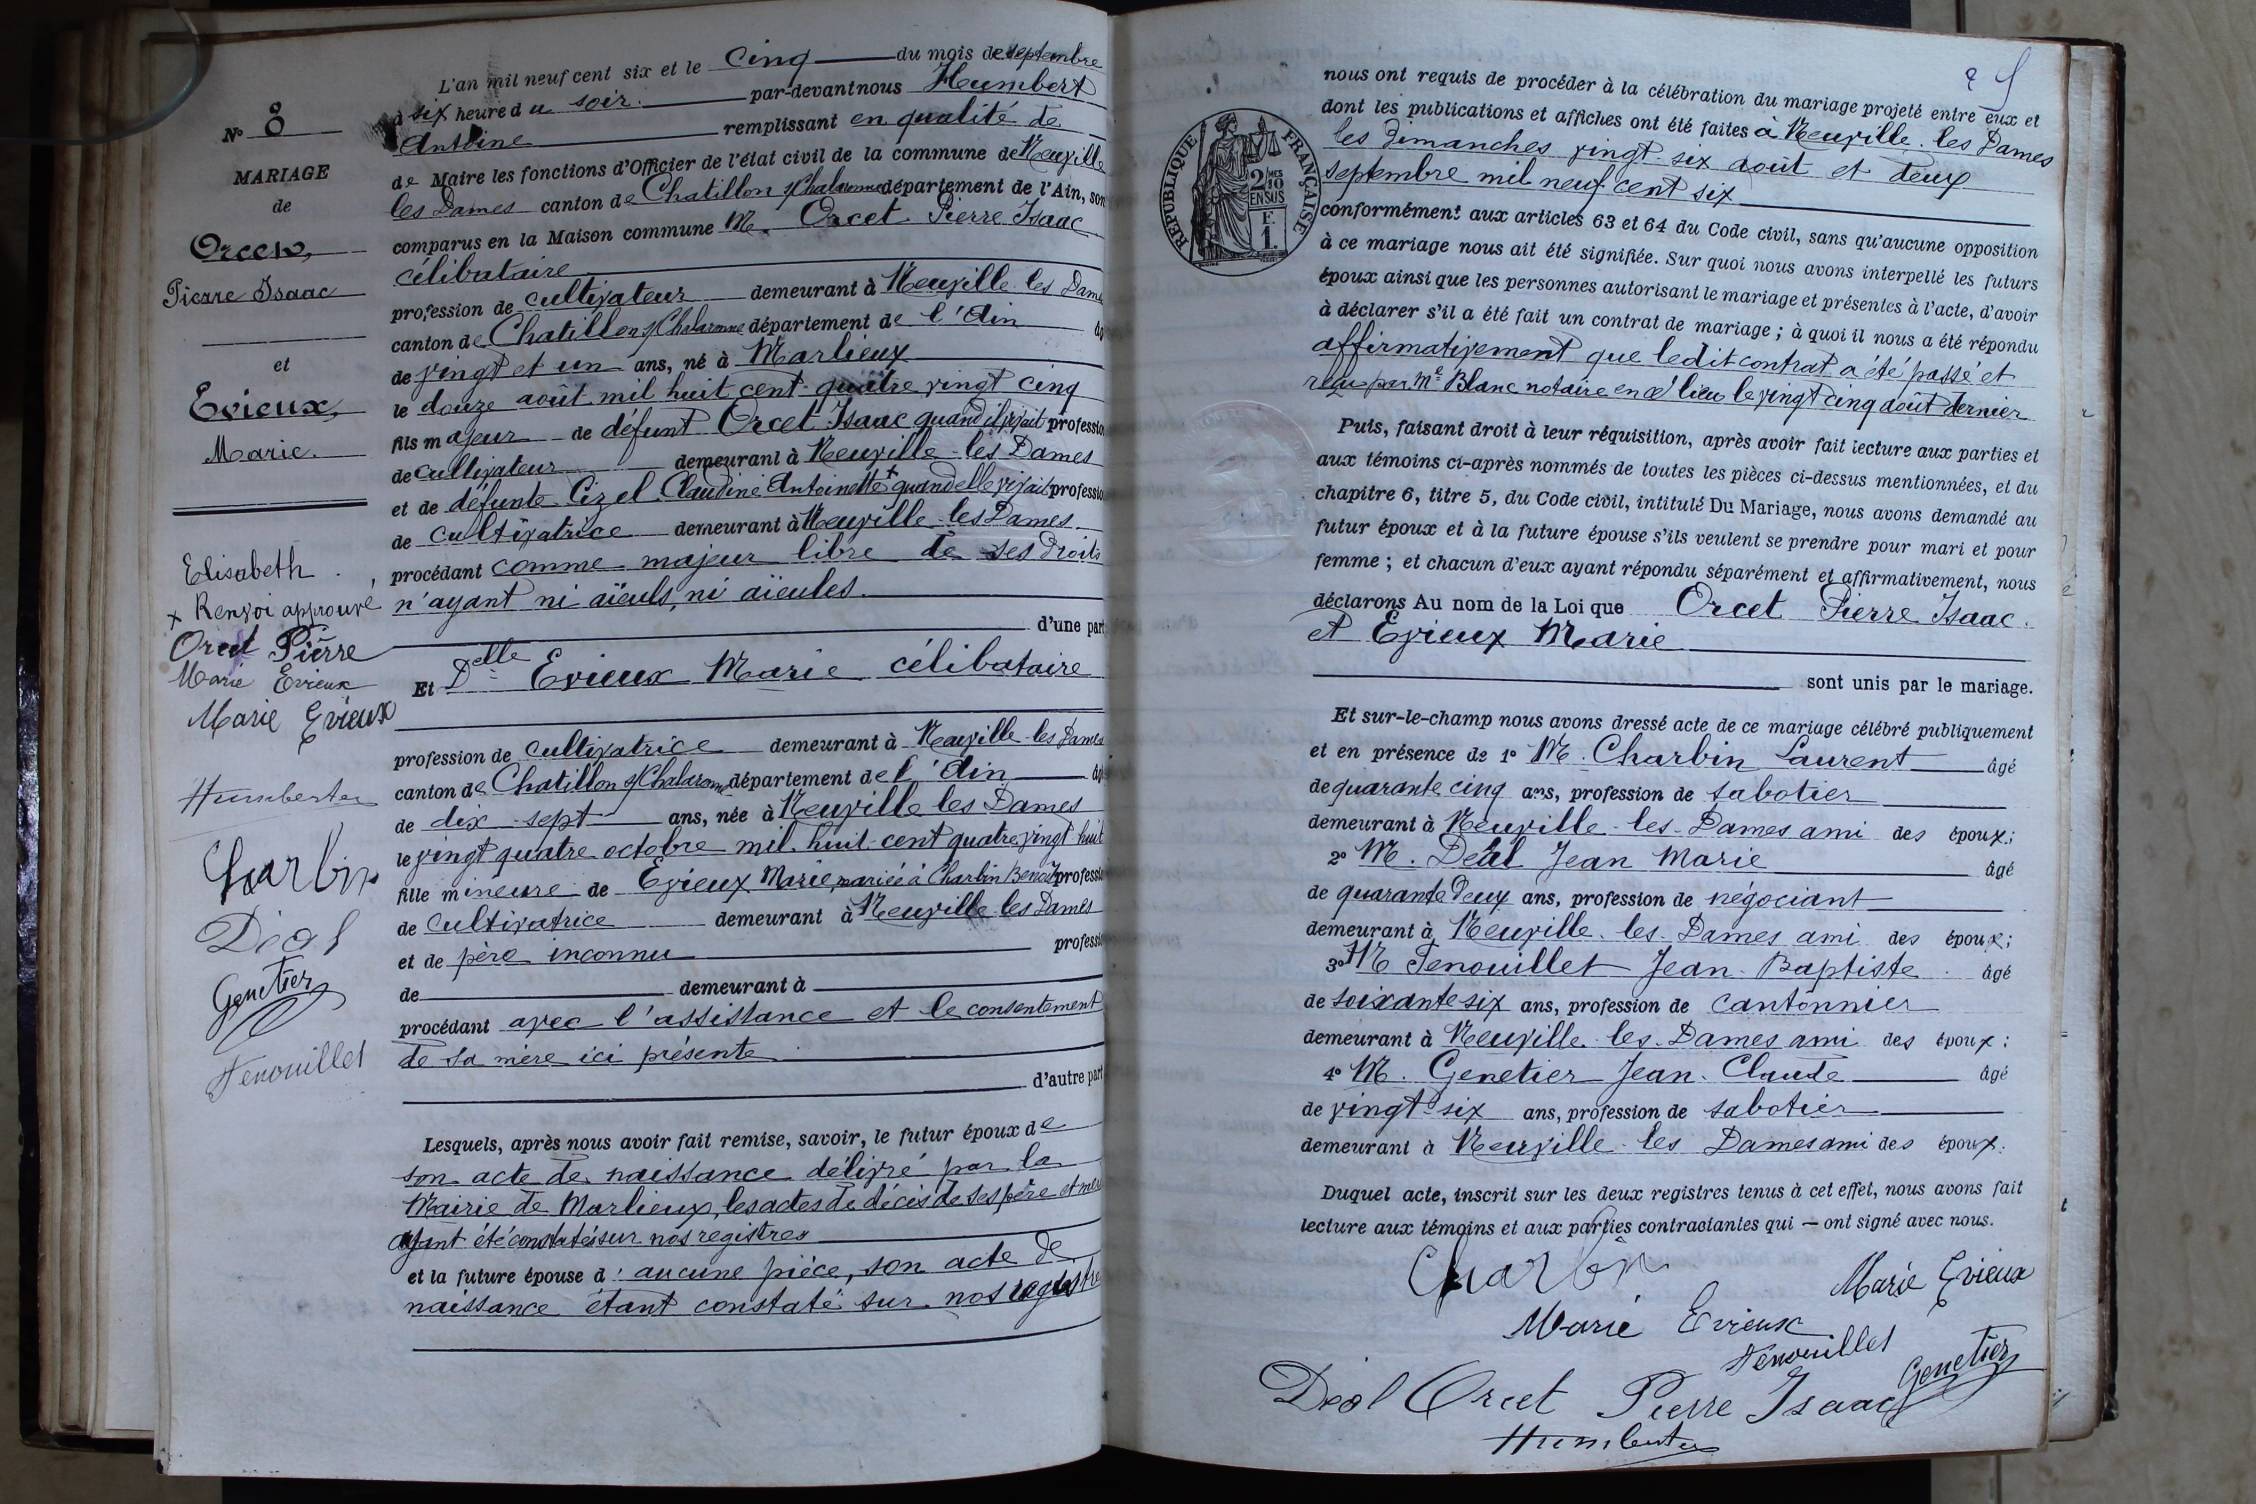 N° 8
MARIAGE
de
Orcet,
Pierre Isaac
et
Evieux,
Marie.
Elisabeth
x Renvoi approuvé
Orcet Pierre
Marie Evieux
Marie Evieux
Humbert
Charbin
Déal
Genetier
Fenouillet
L'an mil neuf cent six et le cinq du mois de septembre
à six heure du soir. par-devant nous Humbert
Antoine remplissant en qualité de
de Maire les fonctions d'Officier de l'état civil de la commune de Neuville
les Dames canton de Chatillon s/Chalaronne département de l'Ain, son
comparus en la Maison commune M. Orcet Pierre Isaac
célibataire
profession de cultivateur demeurant à Neuville les Dames
canton de Chatillon s/Chalaronne département de l'Ain âg
de vingt et un ans, né à Marlieux
le douze août mil huit cent quatre vingt cinq
fils majeur de défunt Orcet Isaac quand il vivait professio
de cultivateur demeurant à Neuville-les Dames
et de défunte Cizel Claudine Antoinette + quand elle vivait professio
de cultivatrice demeurant à Neuville-les Dames
procédant comme majeur libre de ses droits
n'ayant ni aïeuls, ni aïeules.
d'une part
Et Delle Evieux Marie célibataire
profession de cultivatrice demeurant à Neuville-les Dames
canton de Chatillon s/Chalaronne département de l'Ain âg
de dix-sept ans, née à Neuville les Dames
le vingt quatre octobre mil huit cent quatre vingt huit
fille mineure de Evieux Marie, mariée à Charbin Benoît professi
de cultivatrice demeurant à Neuville les Dames
et de père inconnu professi
de demeurant à
procédant avec l'assistance et le consentement
de sa mère ici présente
d'autre part
Lesquels, après nous avoir fait remise, savoir, le futur époux de
son acte de naissance délivré par la
Mairie de Marlieux, les actes de décès de ses père et mère
ayant été constatés sur nos registres
et la future épouse d: aucune pièce, son acte de
naissance étant constaté sur nos registre
nous ont requis de procéder à la célébration du mariage projeté entre eux et
dont les publications et affiches ont été faites à Neuville-les Dames
les dimanches vingt-six août et deux
septembre mil neuf cent six
RÉPUBLIQUE FRANÇAISE
2/10 MES EN SUS
F. 1.
conformément aux articles 63 et 64 du Code civil, sans qu'aucune opposition
à ce mariage nous ait été signifiée. Sur quoi nous avons interpellé les futurs
époux ainsi que les personnes autorisant le mariage et présentes à l'acte, d'avoir
à déclarer s'il a été fait un contrat de mariage; à quoi il nous a été répondu
affirmativement que ledit contrat a été passé et
reçu par Me Blanc notaire en ce lieu le vingt cinq août dernier
Puis, faisant droit à leur réquisition, après avoir fait lecture aux parties et
aux témoins ci-après nommés de toutes les pièces ci-dessus mentionnées, et du
chapitre 6, titre 5, du Code civil, intitulé Du Mariage, nous avons demandé au
futur époux et à la future épouse s'ils veulent se prendre pour mari et pour
femme; et chacun d'eux ayant répondu séparément et affirmativement, nous
déclarons Au nom de la Loi que Orcet Pierre Isaac.
et Evieux Marie
sont unis par le mariage.
Et sur-le-champ nous avons dressé acte de ce mariage célébré publiquement
et en présence de 1° M. Charbin Laurent âgé
de quarante cinq ans, profession de sabotier
demeurant à Neuville-les-Dames ami des époux;
2° M. Déal Jean Marie âgé
de quarante deux ans, profession de négociant
demeurant à Neuville-les-Dames ami des époux;
3° M Fenouillet Jean-Baptiste âgé
de soixante six ans, profession de cantonnier
demeurant à Neuville-les-Dames ami des époux;
4° M. Genetier Jean-Claude âgé
de vingt-six ans, profession de sabotier
demeurant à Neuville-les Dames ami des époux.
Duquel acte, inscrit sur les deux registres tenus à cet effet, nous avons fait
lecture aux témoins et aux parties contractantes qui — ont signé avec nous.
Charbin
Marie Evieux
Marie Evieux
Fenouillet
Genetier
Déal Orcet Pierre Isaac
Humbert